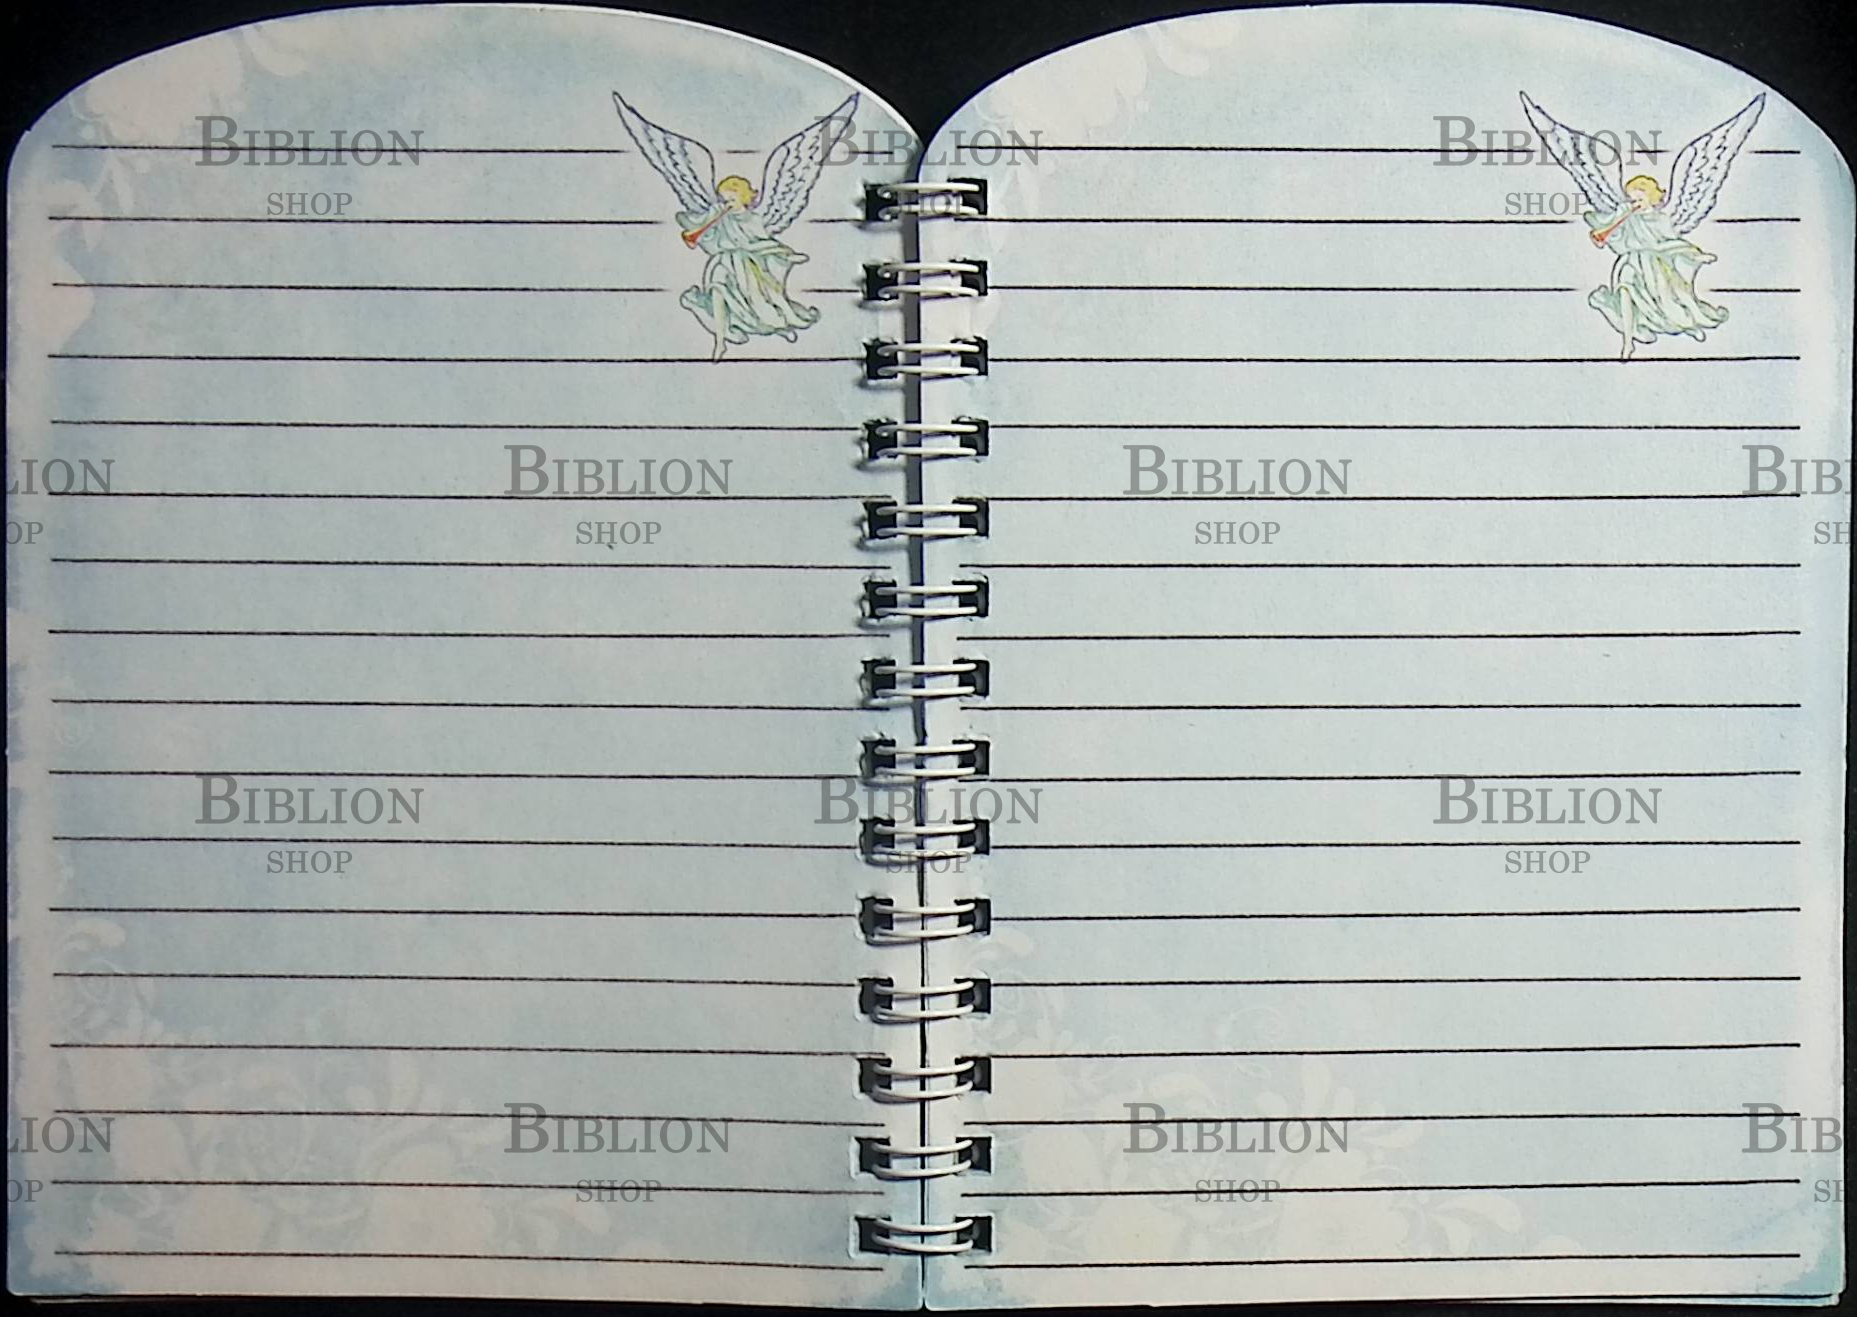 BIBLION BIBLION BIBLION
SHOP SHOP SHOP
LION BIBLION BIBLION BIB
OP SHOP SHOP SH
BIBLION BIBLION BIBLION
SHOP SHOP SHOP
LION BIBLION BIBLION BIB
OP SHOP SHOP SH